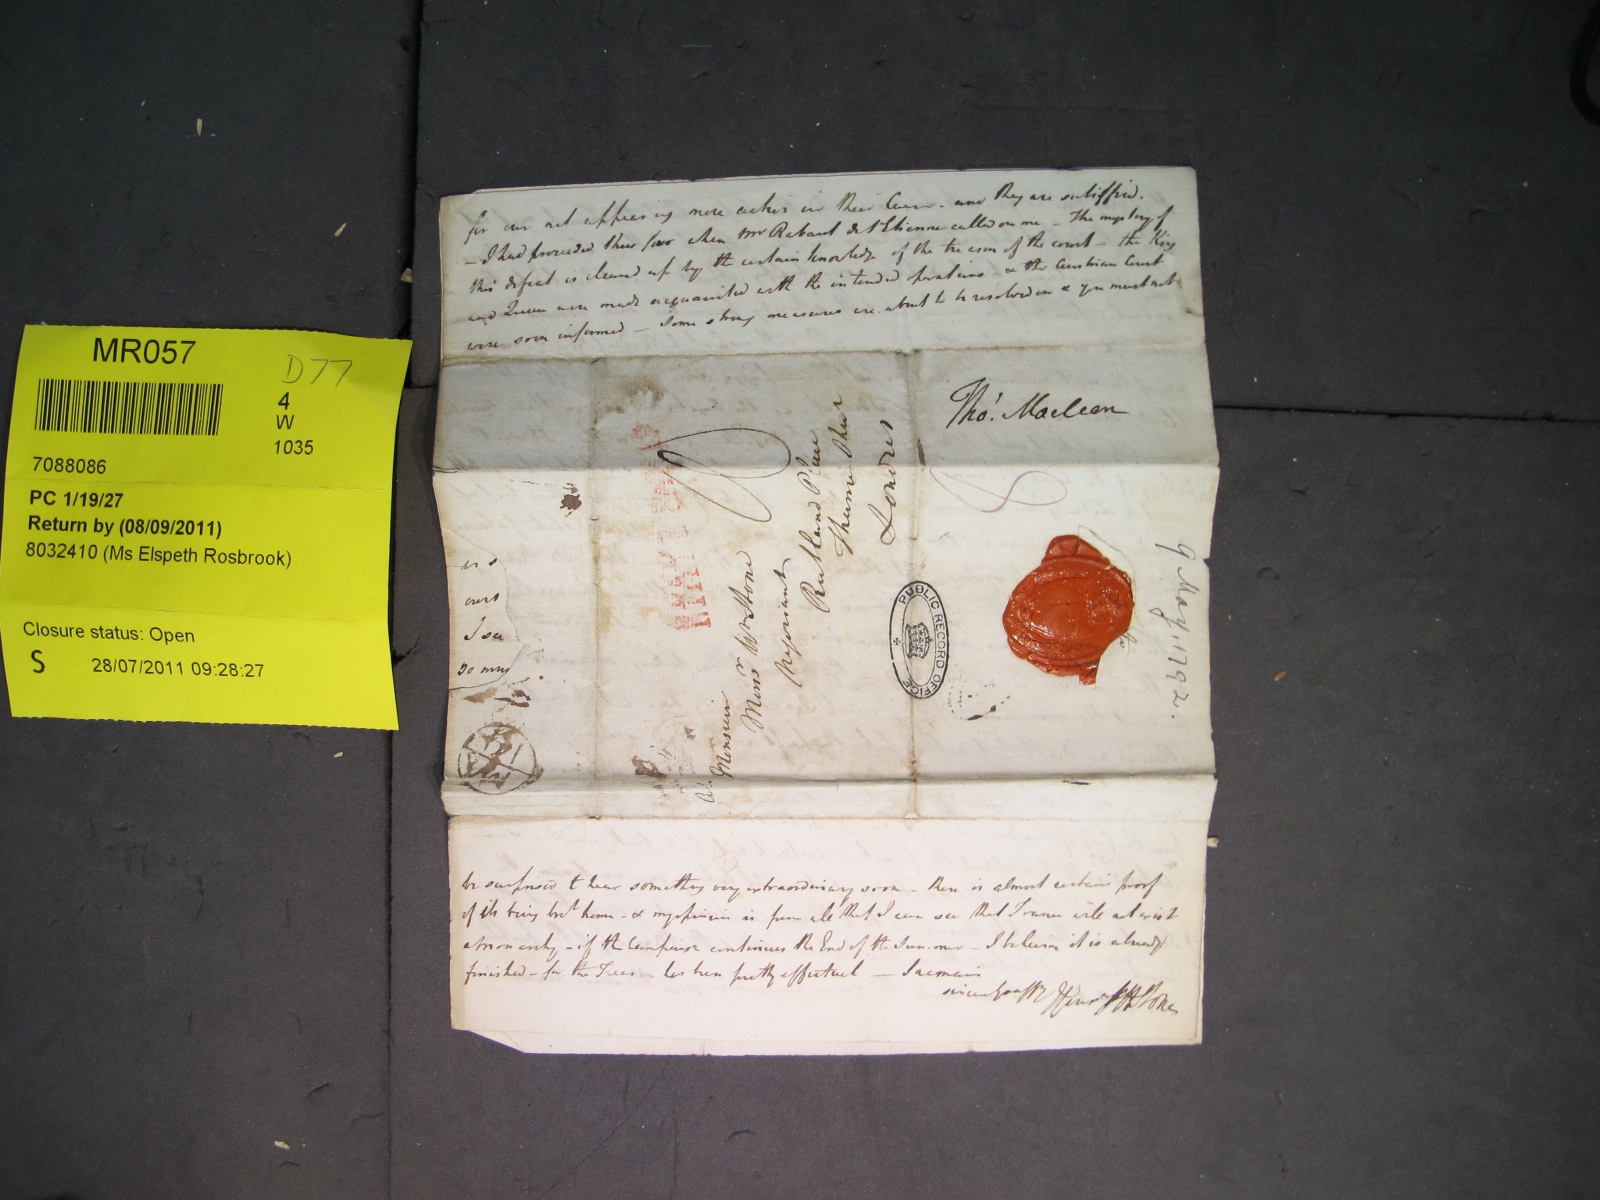 MR057
D77
4
W
1035
7088086
PC 1/19/27
Return by (08/09/2011)
8032410 (Ms Elspeth Rosbrook)
Closure status: Open
S 28/07/2011 09:28:27
for our not appearing more active in their Cause - and they are satisfied.
- I had proceeded thus far when Mr Rabaut de St Etienne called on me - The mystery of
this defeat is cleared up by the certain knowledge of the treason of the court - the King
and Queen were made acquainted with the intended operations - & the Austrian Court
were soon informed - Some strong measures are about to be resolved on & you must not
Thos. Maclean
9 May 1792.
A Monsieur
Monsr Wm Stone
Negociant
Rutland Place
Thames Street
Londres
PUBLIC RECORD OFFICE
I see
so much
be surprised to hear something very extraordinary soon - there is almost certain proof
of its being brot home - & my opinion is from all that I can see that France will not exist
a monarchy - if the Campaign continues the End of the Summer - I believe it is already
finished - for the Treason has been pretty effectual - I remain